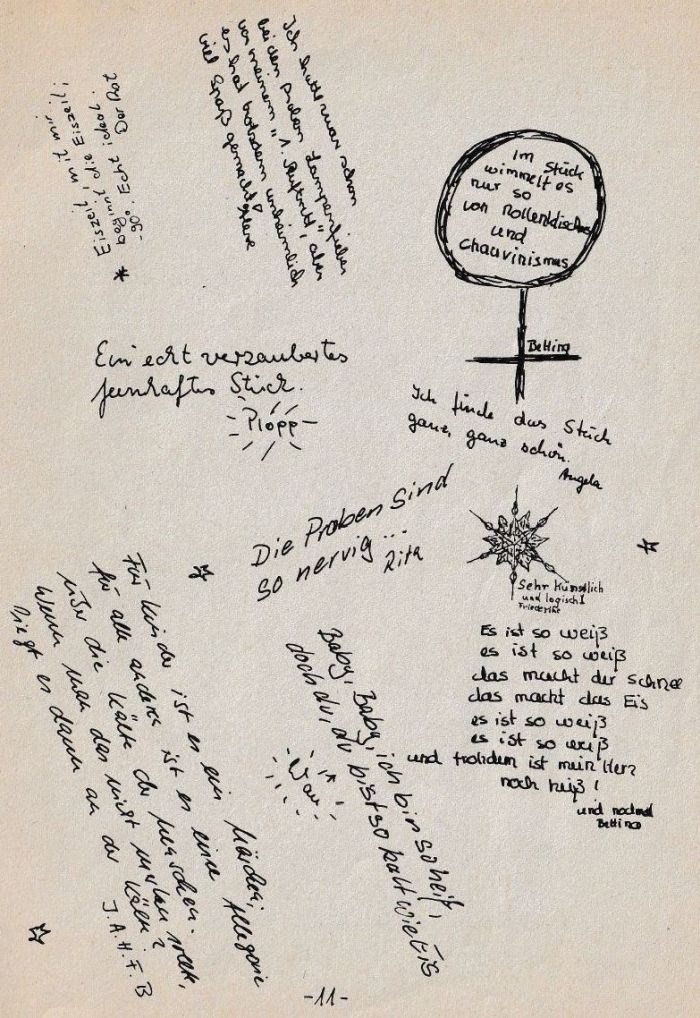 Eiszeit, mit mir
beginnt die Eiszeit!
-90° Echt ideal.
Der Rat
Ich hatte zwar schon
bei den Proben Lampenfieber
vor meinem "1. Auftritt", aber
es hat trotzdem unheimlich
viel Spaß gemacht
Im Stück
wimmelt es
nur so
von Rollenklischees
und
Chauvinismus
Bettina
Ein echt verzaubertes
feenhaftes Stück.
Plopp
Ich finde das Stück
ganz, ganz schön.
Angela
Die Proben sind
so nervig...
Rita
Sehr künstlich
und logisch!
Friederike
Es ist so weiß
es ist so weiß
das macht der Schnee
das macht das Eis
es ist so weiß
es ist so weiß
und trotzdem ist mein Herz
noch heiß!
und nochmal
Bettina
Für Kinder ist es ein Märchen,
für alle anderen ist es eine Allegorie
über die Kälte der Menschen.
Wenn man das nicht merken
liegt es dann an der Kälte?
J.A.H.F.B
Baby, Baby, ich bin so heiß,
doch du, du bist so kalt wie Eis
Wau
-11-